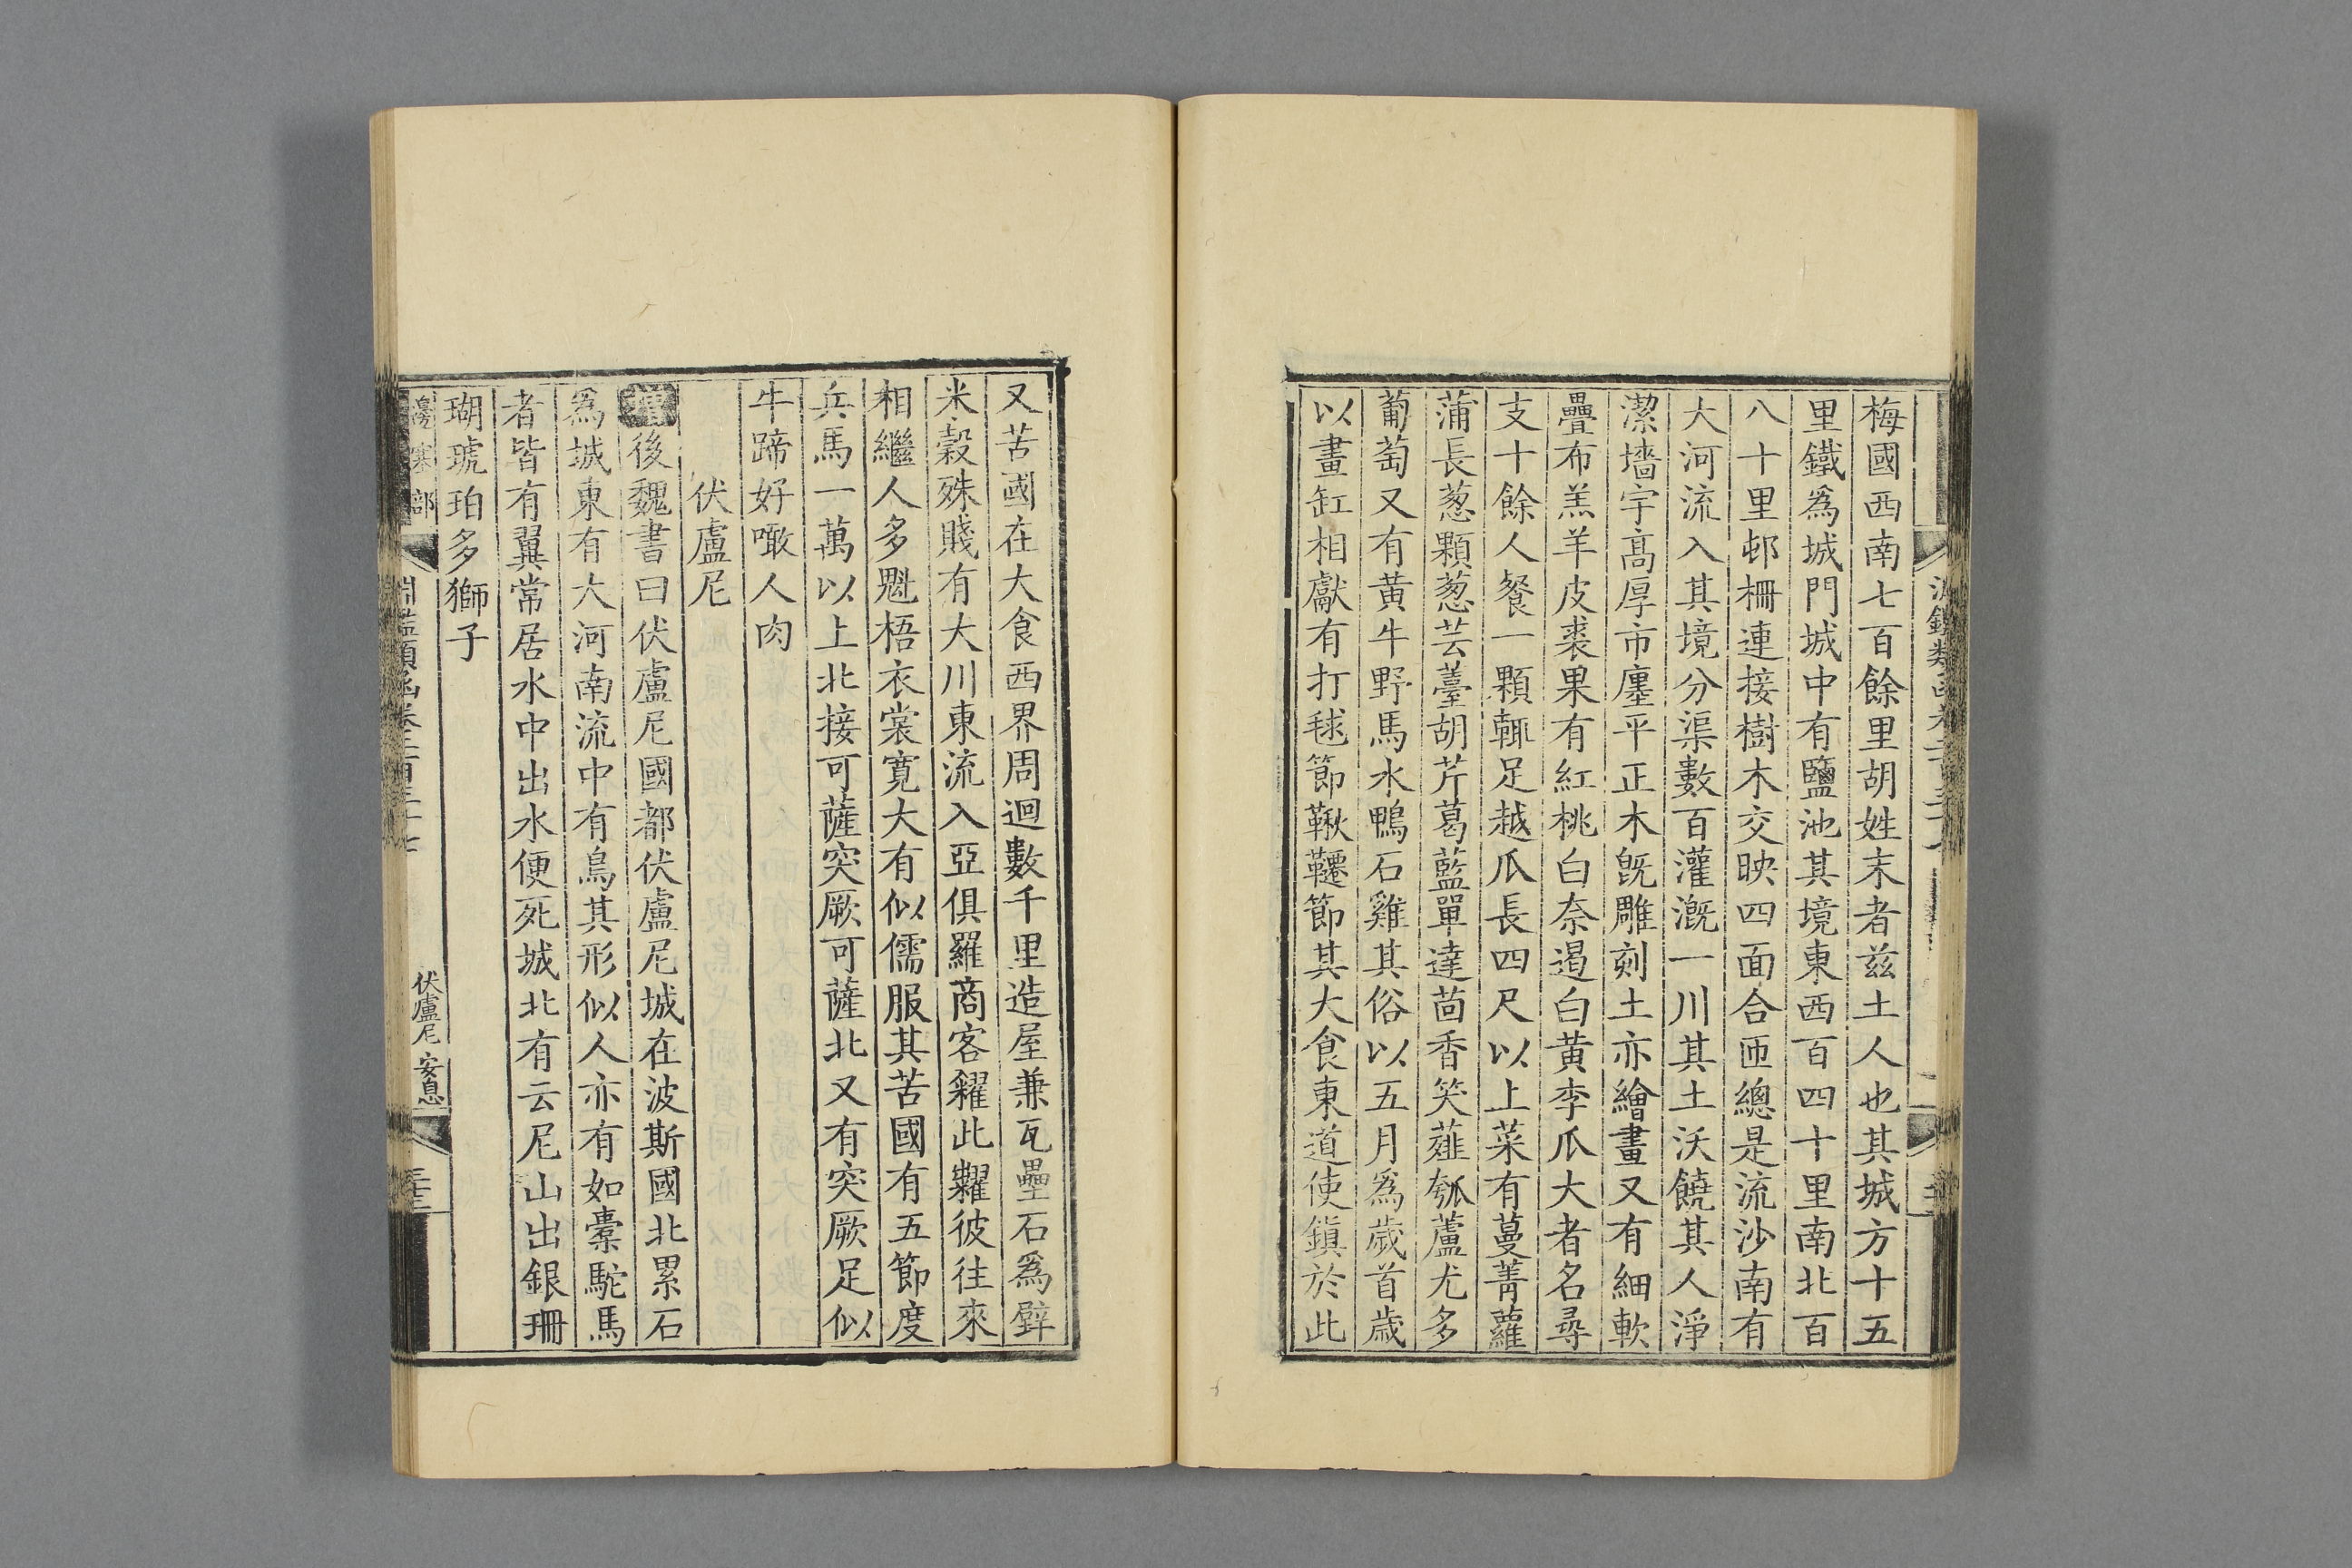 梅國西南七百餘里胡姓末者兹土人也其城方十五
里鐵爲城門城中有鹽池其境東西百四十里南北百
八十里邨柵連接樹木交映四面合匝總是流沙南有
大河流入其境分渠數百灌漑一川其土沃饒其人淨
潔墻宇高厚市廛平正木旣雕刻土亦繪畫又有細軟
疊布羔羊皮裘果有紅桃白柰遏白黃李瓜大者名尋
支十餘人餐一顆輒足越瓜長四尺以上菜有蔓菁蘿
蒲長葱顆葱芸薹胡芹葛藍單達茴香茭薤瓠蘆尤多
葡萄又有黃牛野馬水鴨石雞其俗以五月爲歲首歲
以畫缸相獻有打毬節鞦韆節其大食東道使鎮於此
又苦國在大食西界周迴數千里造屋兼瓦壘石爲壁
米穀殊賤有大川東流入亞俱羅商客糴此糶彼往來
相繼人多魁梧衣裳寬大有似儒服其苦國有五節度
兵馬一萬以上北接可薩突厥可薩北又有突厥足似
牛蹄好噉人肉
伏盧尼
增後魏書曰伏盧尼國都伏盧尼城在波斯國北累石
爲城東有大河南流中有鳥其形似人亦有如橐駝馬
者皆有翼常居水中出水便死城北有云尼山出銀珊
瑚琥珀多獅子
邊塞部
淵鑑類函卷二百三十七
伏盧尼 安息